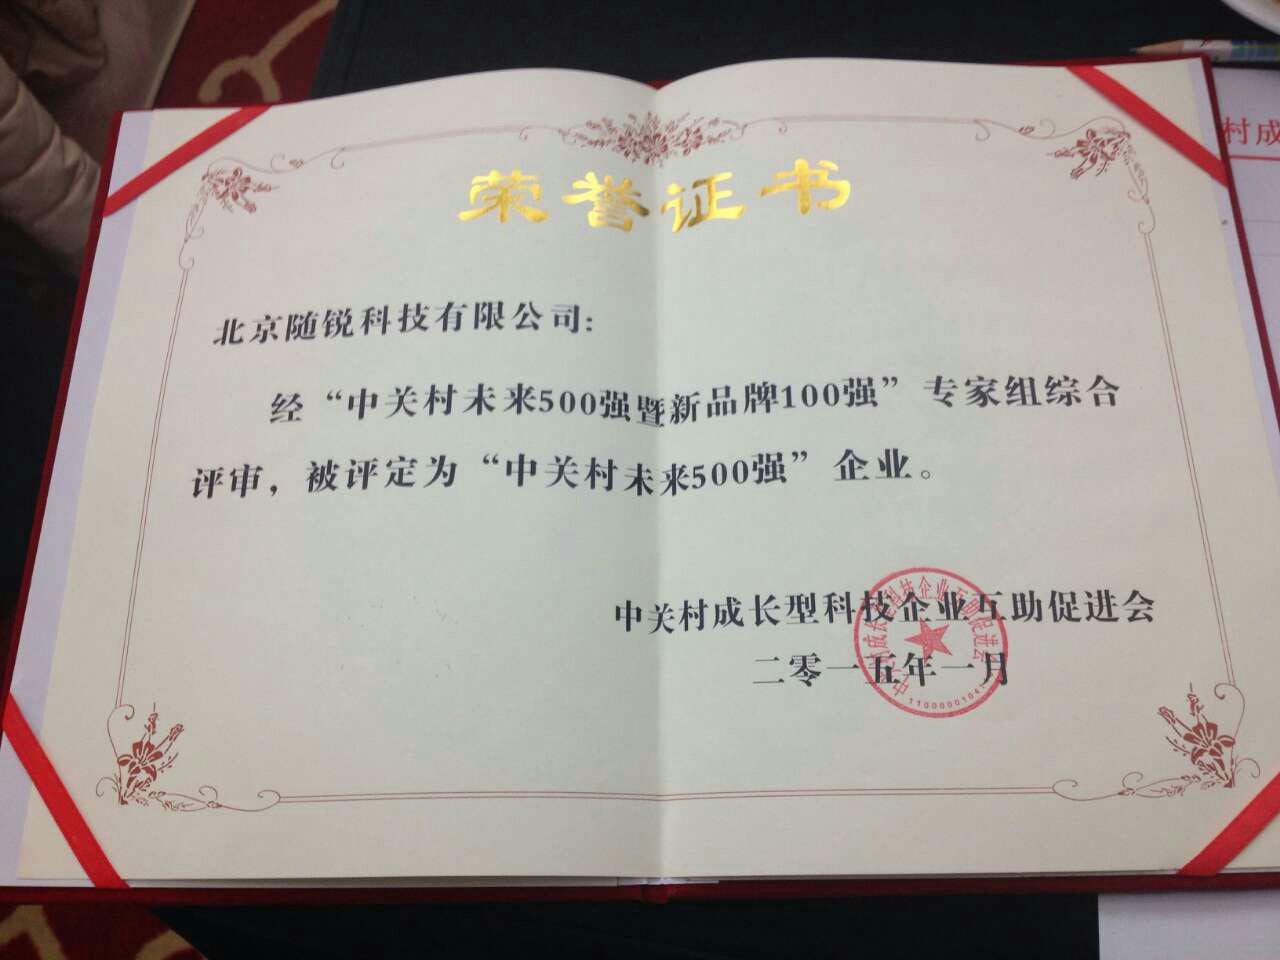 荣誉证书
北京随锐科技有限公司：
经“中关村未来500强暨新品牌100强”专家组综合
评审，被评定为“中关村未来500强”企业。
中关村成长型科技企业互助促进会
二零一五年一月
中关村成长型科技企业互助促进会
村成